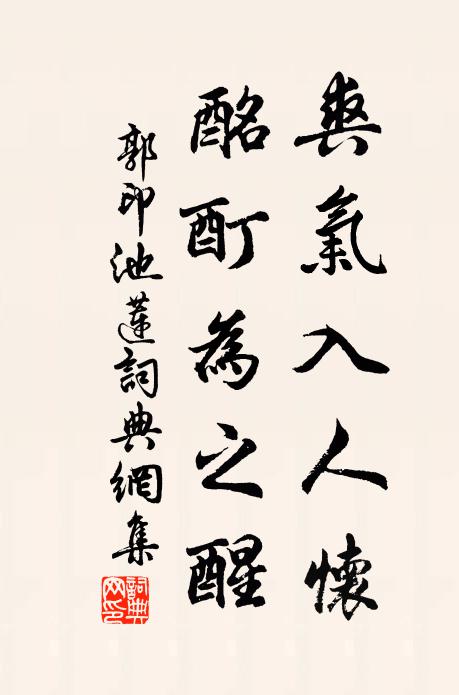 爽氣入人懷
酩酊為之醒
郭印池蓮詞典網集
詞典網印